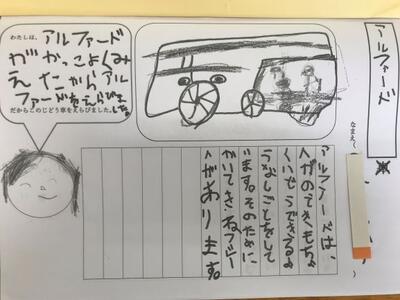 アルファード
なまえ(
わたしは、
アルファード
がかっこよくみ
えたからアル
ファードをえらびました。
だからこのじどう車をえらびました。
アルファードは、
人がのてきもちよ
くいどうできるよ
うなしごとをして
います。そのために
かいてき、ねブレー
人があります。